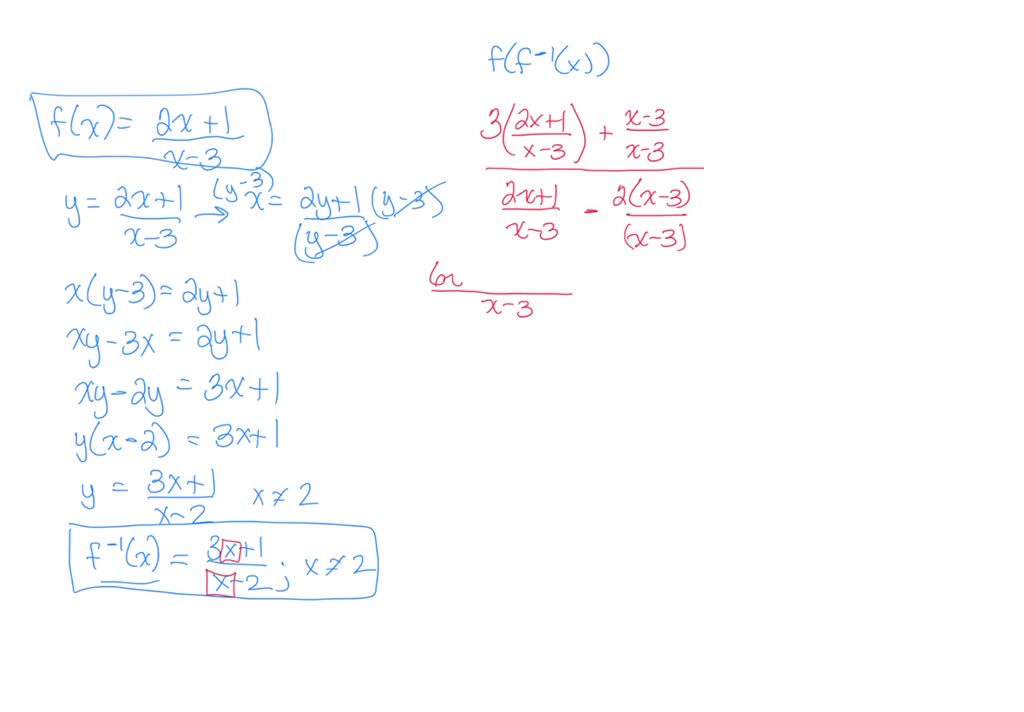 f(x) = (2x+1)/(x-3)
y = (2x+1)/(x-3) → (y-3) x = (2y+1)/(y-3) (y-3)
x(y-3) = 2y+1
xy-3x = 2y+1
xy-2y = 3x+1
y(x-2) = 3x+1
y = (3x+1)/(x-2) x ≠ 2
f⁻¹(x) = (3x+1)/(x-2) ; x ≠ 2
f(f⁻¹(x))
3((2x+1)/(x-3)) + (x-3)/(x-3)
(2x+1)/(x-3) - 2(x-3)/(x-3)
6
x-3